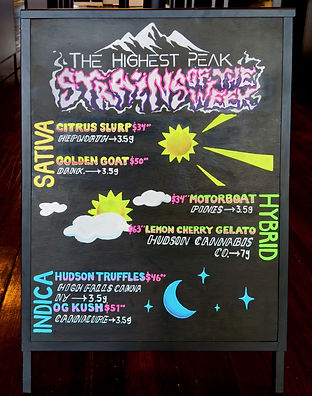 THE HIGHEST PEAK
STRAINS OF THE WEEK
SATIVA
CITRUS SLURP $34
HEPWORTH → 3.5g
GOLDEN GOAT $50
DANK. → 3.5g
HYBRID
$34 MOTORBOAT
PINES → 3.5g
$63 LEMON CHERRY GELATO
HUDSON CANNABIS
CO. → 7g
INDICA
HUDSON TRUFFLES $46
HIGH FALLS CANNA
NY → 3.5g
OG KUSH $51
→ 3.5g